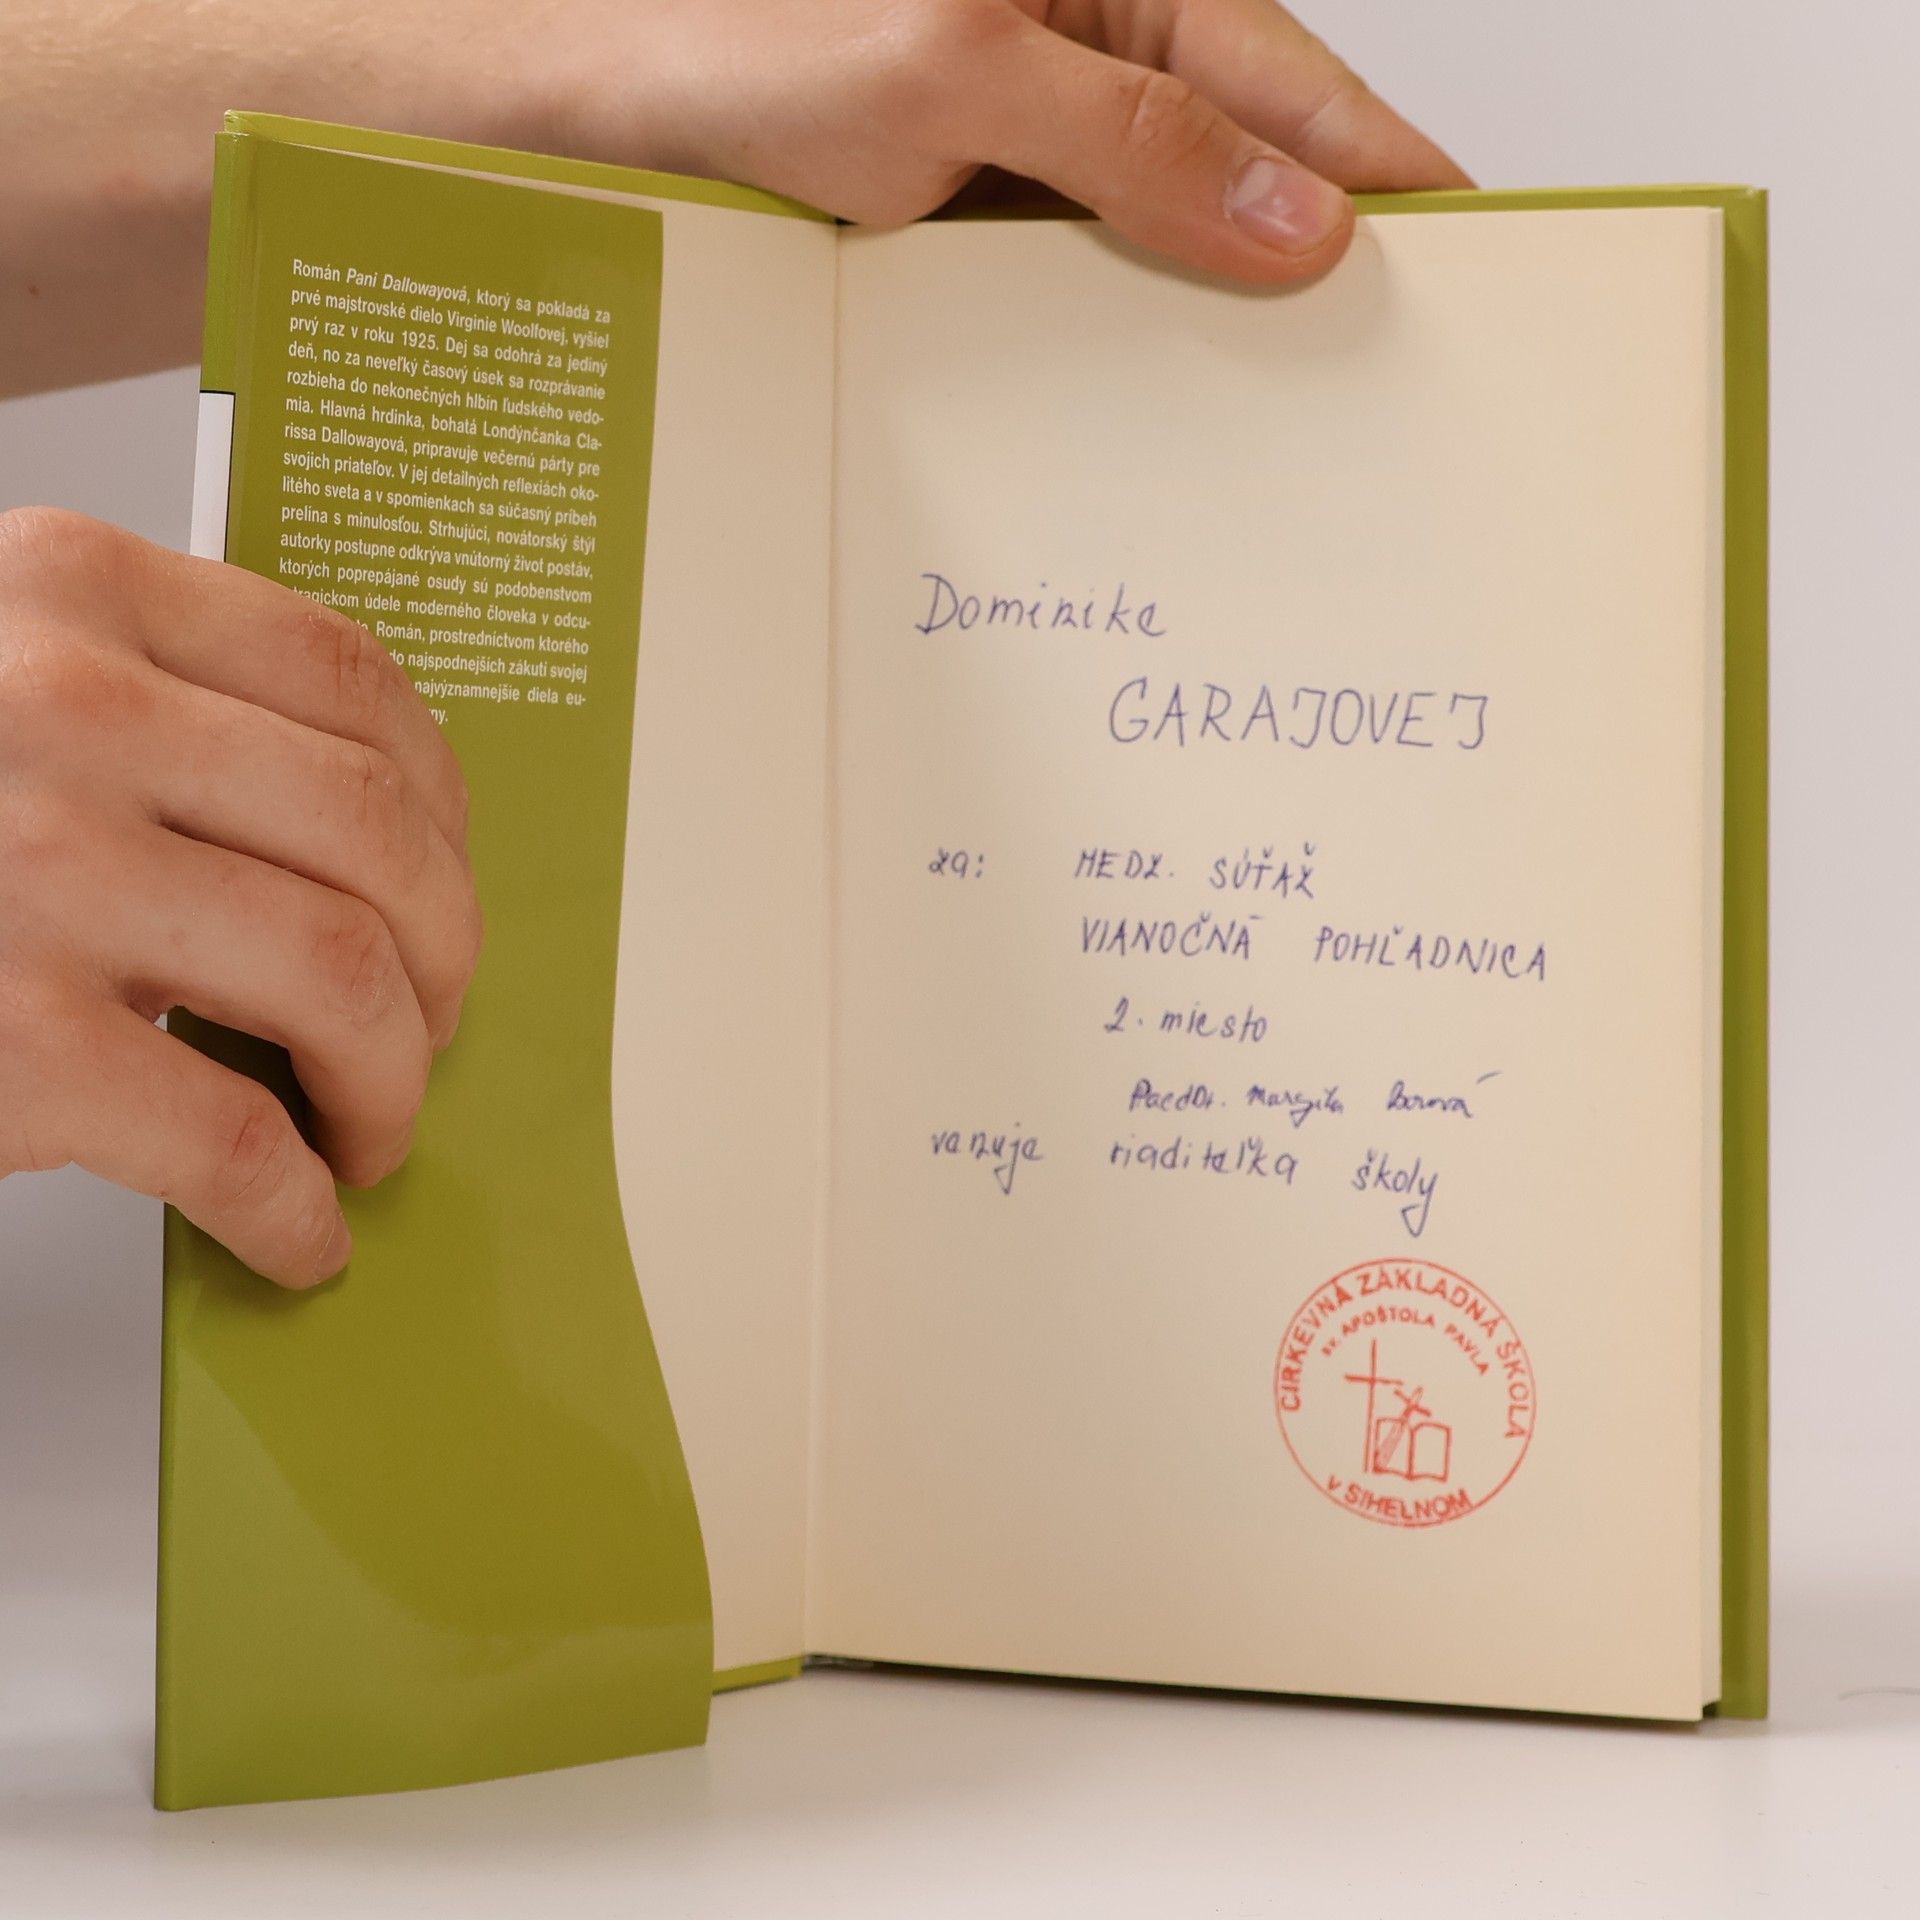 Román Pani Dallowayová, ktorý sa pokladá za
prvé majstrovské dielo Virginie Woolfovej, vyšiel
prvý raz v roku 1925. Dej sa odohrá za jediný
deň, no za neveľký časový úsek sa rozprávanie
rozbieha do nekonečných hlbín ľudského vedo-
mia. Hlavná hrdinka, bohatá Londýnčanka Cla-
rissa Dallowayová, pripravuje večernú párty pre
svojich priateľov. V jej detailných reflexiách oko-
litého sveta a v spomienkach sa súčasný príbeh
prelína s minulosťou. Strhujúci, novátorský štýl
autorky postupne odkrýva vnútorný život postáv,
ktorých poprepájané osudy sú podobenstvom
tragickom údele moderného človeka v odcu-
Román, prostredníctvom ktorého
do najspodnejších zákutí svojej
najvýznamnejšie diela eu-
Dominike
GARAJOVEJ
za: MEDZ. SÚŤAŽ
VIANOČNÁ POHĽADNICA
2. miesto
PaedDr. Margita
venuje riaditeľka školy
CIRKEVNÁ ZÁKLADNÁ ŠKOLA
SV. APOŠTOLA PAVLA
V SIHELNOM